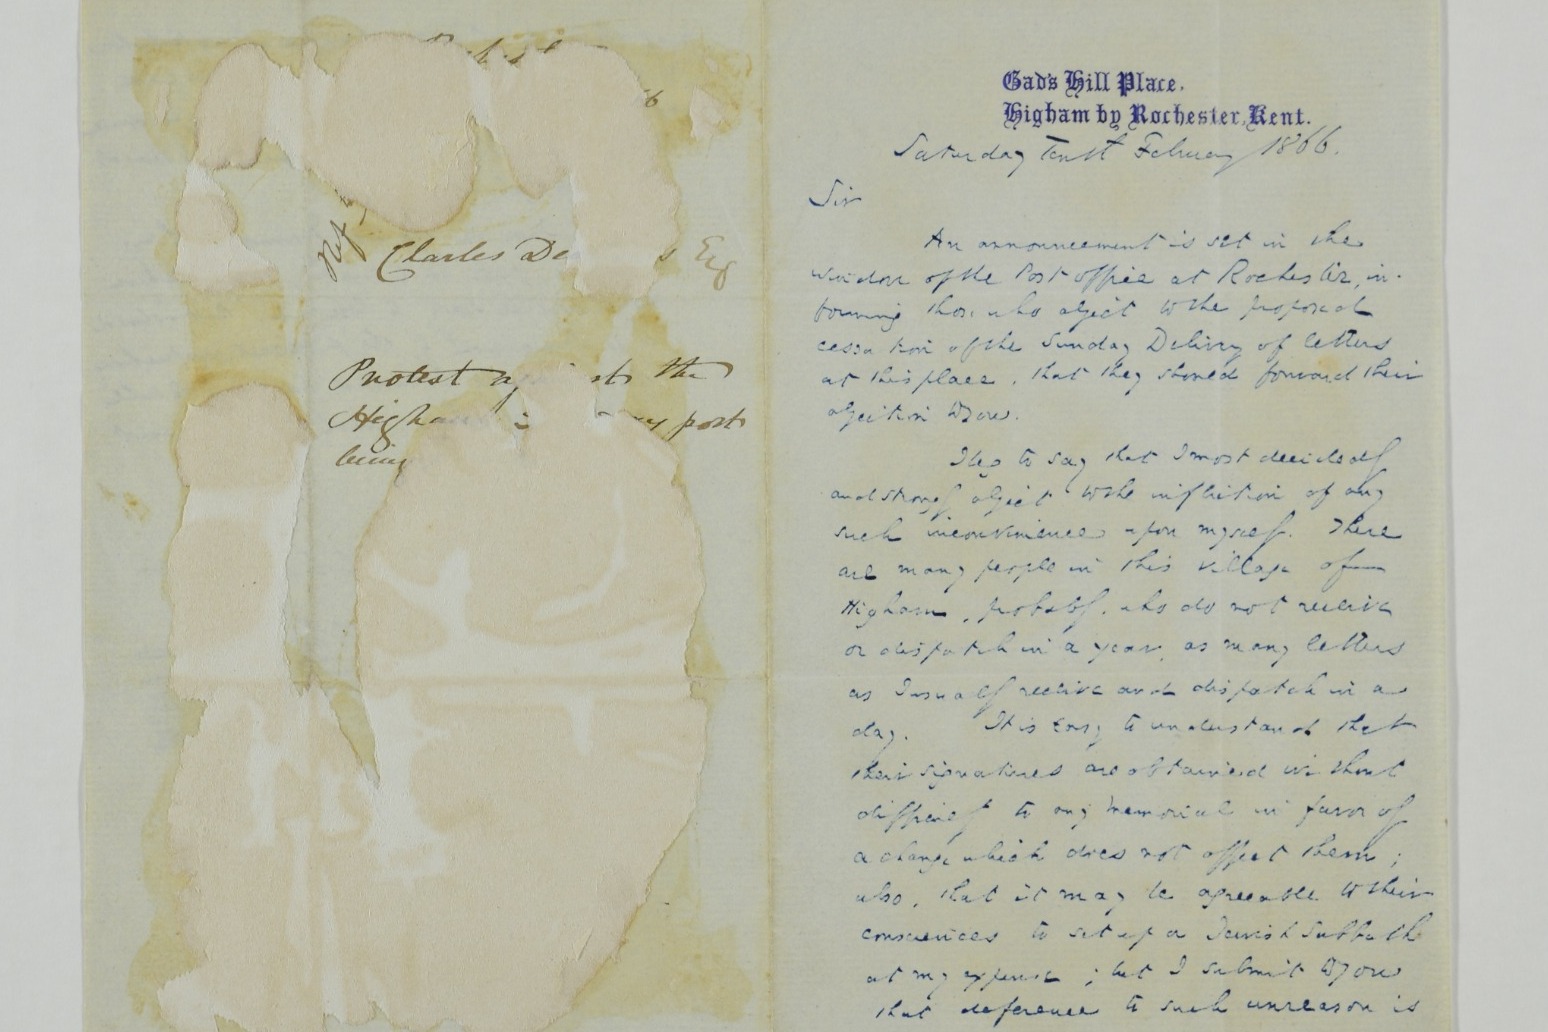 Ref
Charles De s Esq
Protest ag sts the
Higha ay post
being
Gad's Hill Place,
Higham by Rochester, Kent.
Saturday Tenth February 1866.
Sir
An announcement is set in the
window of the Post office at Rochester, in-
forming those who object to the proposed
cessation of the Sunday Delivery of letters
at this place, that they should forward their
objection to you.
I beg to say that I most decidedly
and strongly object to the infliction of any
such inconvenience upon myself. There
are many people in this village of
Higham, probably, who do not receive
or dispatch in a year, as many letters
as I usually receive and dispatch in a
day. It is easy to understand that
their signatures are obtained without
difficulty to any memorial in favor of
a change which does not affect them;
also, that it may be agreeable to their
consciences to set up a Jewish Sabbath
at my expense; but I submit to you
that deference to such unreason is